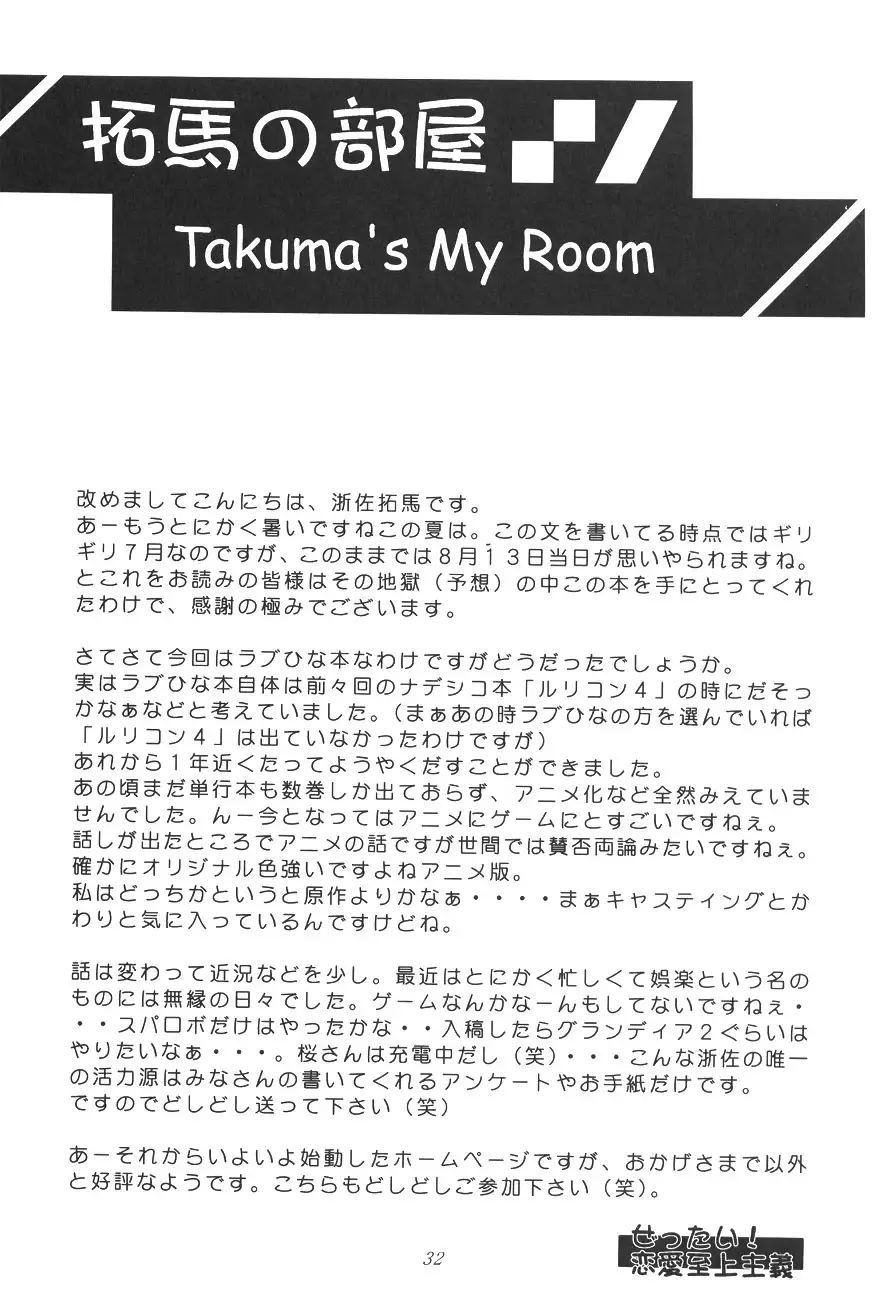 拓馬の部屋
Takuma's My Room
改めましてこんにちは、浙佐拓馬です。
あーもうとにかく暑いですねこの夏は。この文を書いてる時点ではギリ
ギリ７月なのですが、このままでは８月１３日当日が思いやられますね。
とこれをお読みの皆様はその地獄（予想）の中この本を手にとってくれ
たわけで、感謝の極みでございます。
さてさて今回はラブひな本なわけですがどうだったでしょうか。
実はラブひな本自体は前々回のナデシコ本「ルリコン４」の時にだそっ
かなぁなどと考えていました。（まぁあの時ラブひなの方を選んでいれば
「ルリコン４」は出ていなかったわけですが）
あれから１年近くたってようやくだすことができました。
あの頃まだ単行本も数巻しか出ておらず、アニメ化など全然みえていま
せんでした。んー今となってはアニメにゲームにとすごいですねぇ。
話しが出たところでアニメの話ですが世間では賛否両論みたいですねぇ。
確かにオリジナル色強いですよねアニメ版。
私はどっちかというと原作よりかなぁ・・・・まぁキャスティングとか
わりと気に入っているんですけどね。
話は変わって近況などを少し。最近はとにかく忙しくて娯楽という名の
ものには無縁の日々でした。ゲームなんかなーんもしてないですねぇ・
・・スパロボだけはやったかな・・入稿したらグランディア２ぐらいは
やりたいなぁ・・・。桜さんは充電中だし（笑）・・・こんな浙佐の唯一
の活力源はみなさんの書いてくれるアンケートやお手紙だけです。
ですのでどしどし送って下さい（笑）
あーそれからいよいよ始動したホームページですが、おかげさまで以外
と好評なようです。こちらもどしどしご参加下さい（笑）。
32
せったい！
恋愛至上主義